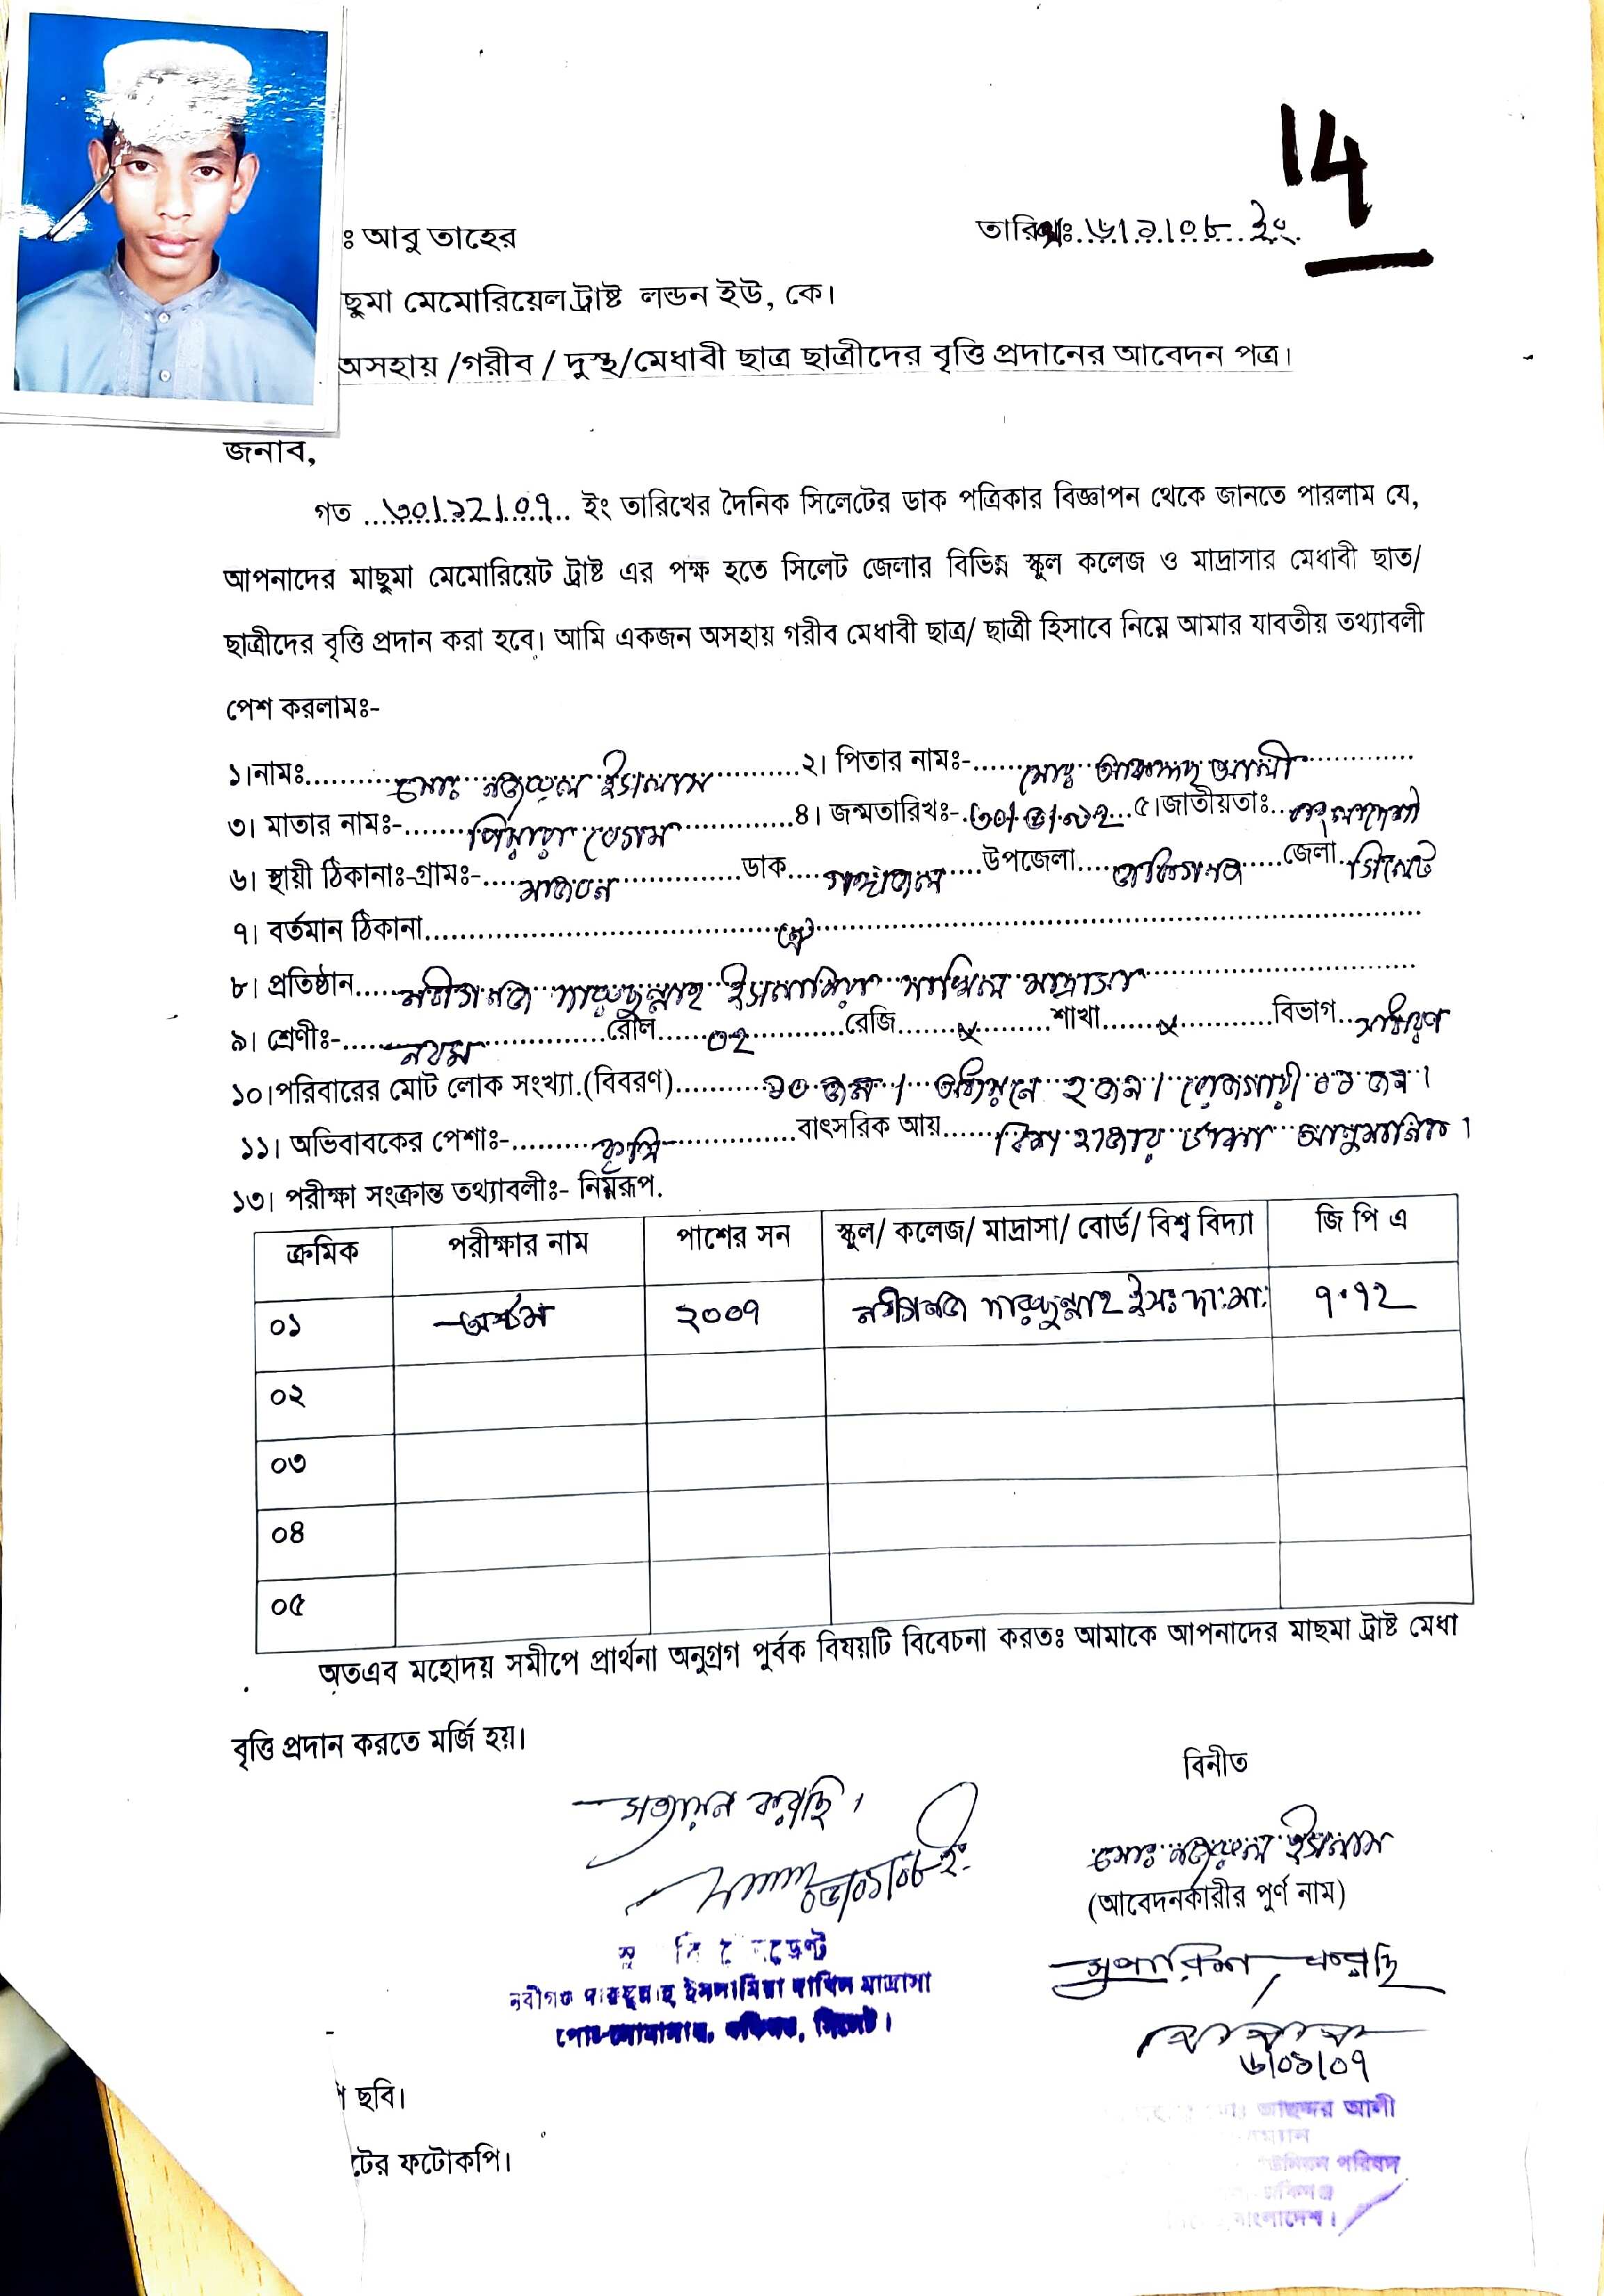 14
ঃ আবু তাহের
তারিখঃ ৬/১/০৮ ইং
ছুমা মেমোরিয়েল ট্রাষ্ট লন্ডন ইউ, কে।
অসহায় /গরীব / দুস্থ/মেধাবী ছাত্র ছাত্রীদের বৃত্তি প্রদানের আবেদন পত্র।
জনাব,
গত ৩০/১২/০৭ ইং তারিখের দৈনিক সিলেটের ডাক পত্রিকার বিজ্ঞাপন থেকে জানতে পারলাম যে,
আপনাদের মাছুমা মেমোরিয়েট ট্রাষ্ট এর পক্ষ হতে সিলেট জেলার বিভিন্ন স্কুল কলেজ ও মাদ্রাসার মেধাবী ছাত/
ছাত্রীদের বৃত্তি প্রদান করা হবে। আমি একজন অসহায় গরীব মেধাবী ছাত্র/ ছাত্রী হিসাবে নিম্নে আমার যাবতীয় তথ্যাবলী
পেশ করলামঃ-
১।নামঃ মোঃ নজরুল ইসলাম ২। পিতার নামঃ- মোঃ আলী
৩। মাতার নামঃ- পিয়ারা বেগম ৪। জন্মতারিখঃ- ৫।জাতীয়তাঃ বাংলাদেশী
৬। স্থায়ী ঠিকানাঃ-গ্রামঃ- ডাক উপজেলা জকিগনজ জেলা সিলেট
৭। বর্তমান ঠিকানা ঐ
৮। প্রতিষ্ঠান নবীগনজ দারুছুন্নাহ ইসলামিয়া দাখিল মাদ্রাসা
৯। শ্রেণীঃ- নবম রৌল ০২ রেজি × শাখা × বিভাগ সাধারণ
১০।পরিবারের মোট লোক সংখ্যা.(বিবরণ) ১০ জন। অধ্যয়নে ২ জন। রোজগারী ০১ জন।
১১। অভিবাবকের পেশাঃ- কৃষি বাৎসরিক আয় বিশ হাজার টাকা আনুমানিক।
১৩। পরীক্ষা সংক্রান্ত তথ্যাবলীঃ- নিম্নরূপ.
ক্রমিক পরীক্ষার নাম পাশের সন স্কুল/ কলেজ/ মাদ্রাসা/ বোর্ড/ বিশ্ব বিদ্যা জি পি এ
০১ অষ্টম ২০০৭ নবীগনজ দারুছুন্নাহ ইসঃ দাঃ মাঃ ৭.৭২
০২
০৩
০৪
০৫
অতএব মহোদয় সমীপে প্রার্থনা অনুগ্রগ পুর্বক বিষয়টি বিবেচনা করতঃ আমাকে আপনাদের মাছমা ট্রাষ্ট মেধা
বৃত্তি প্রদান করতে মর্জি হয়।
বিনীত
সত্যায়ন করছি।
০৬/০১/০৮ ইং
মোঃ নজরুল ইসলাম
(আবেদনকারীর পুর্ণ নাম)
সুপারিশ করছি
নবীগঞ্জ দারুছুন্নাহ ইসলামিয়া দাখিল মাদ্রাসা
সিলেট।
৬/০১/০৭
ছবি।
আলী
টের ফটোকপি।
পরিষদ
বাংলাদেশ।